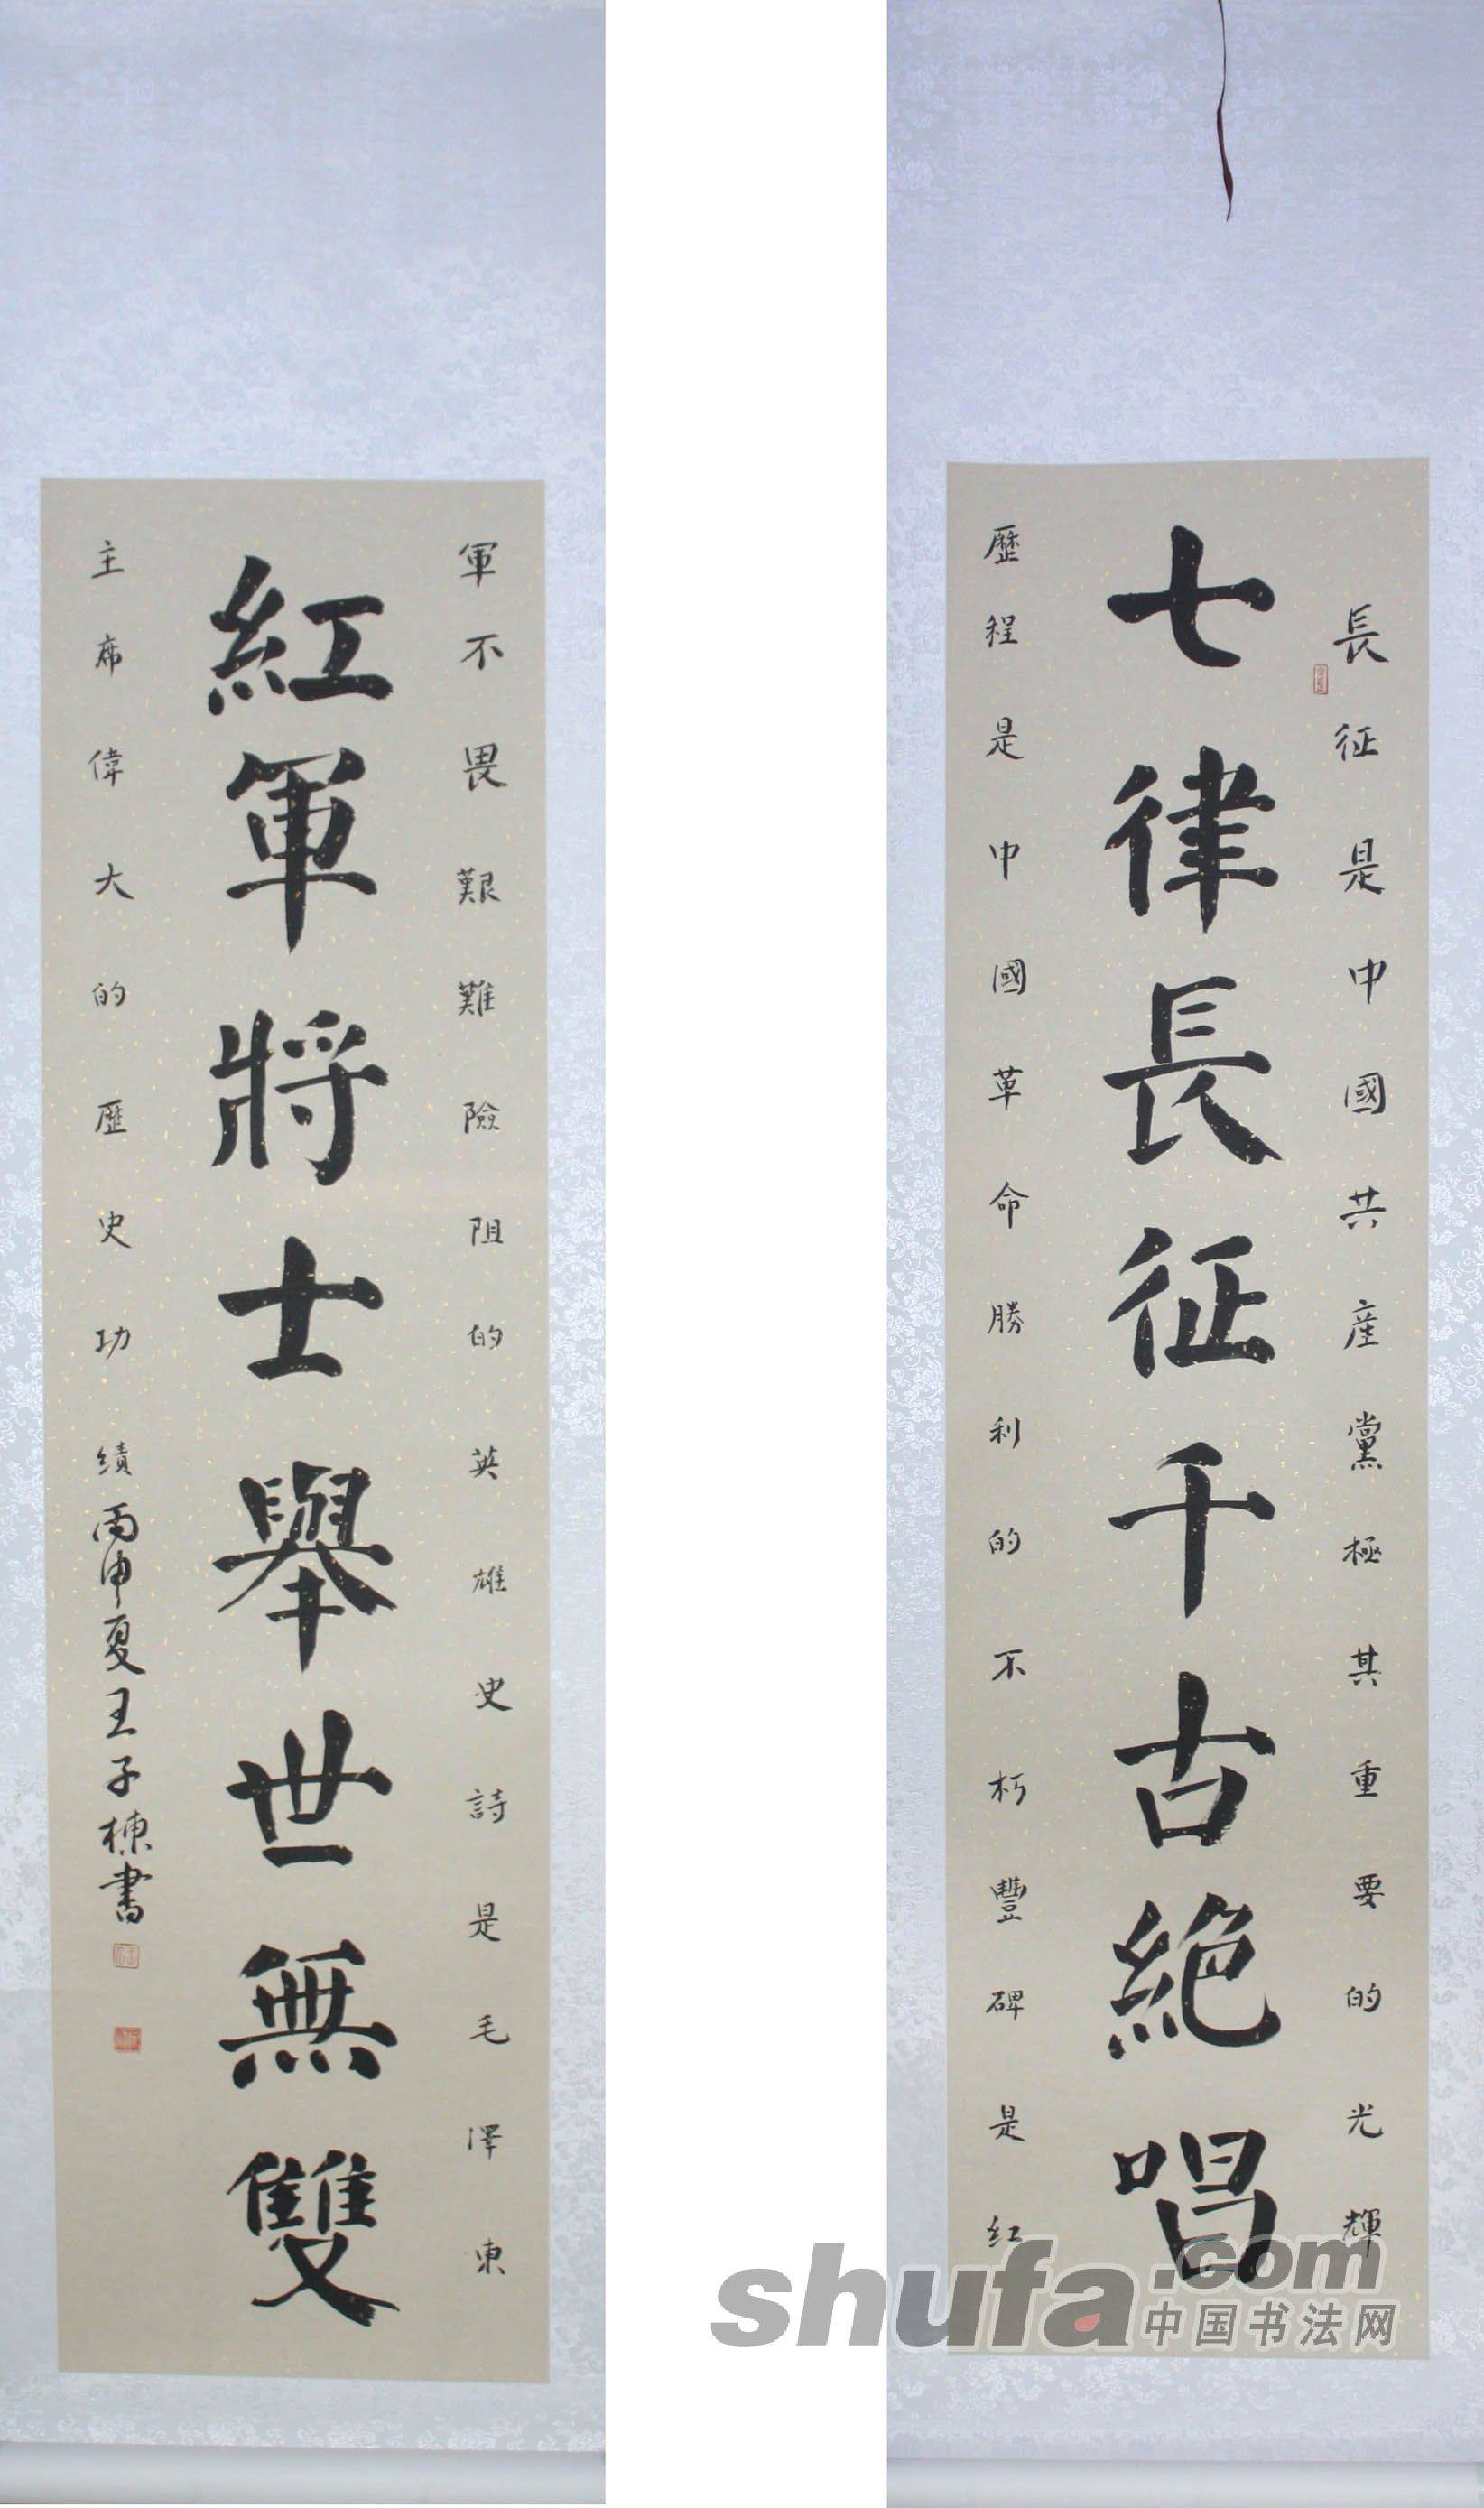 長征是中國共産黨極其重要的光輝
七律長征千古絕唱
歷程是中國革命勝利的不朽豐碑是紅
軍不畏艱難險阻的英雄史詩是毛澤東
紅軍將士舉世無雙
主席偉大的歷史功績丙申夏王子棟書
shufa.com
中国书法网